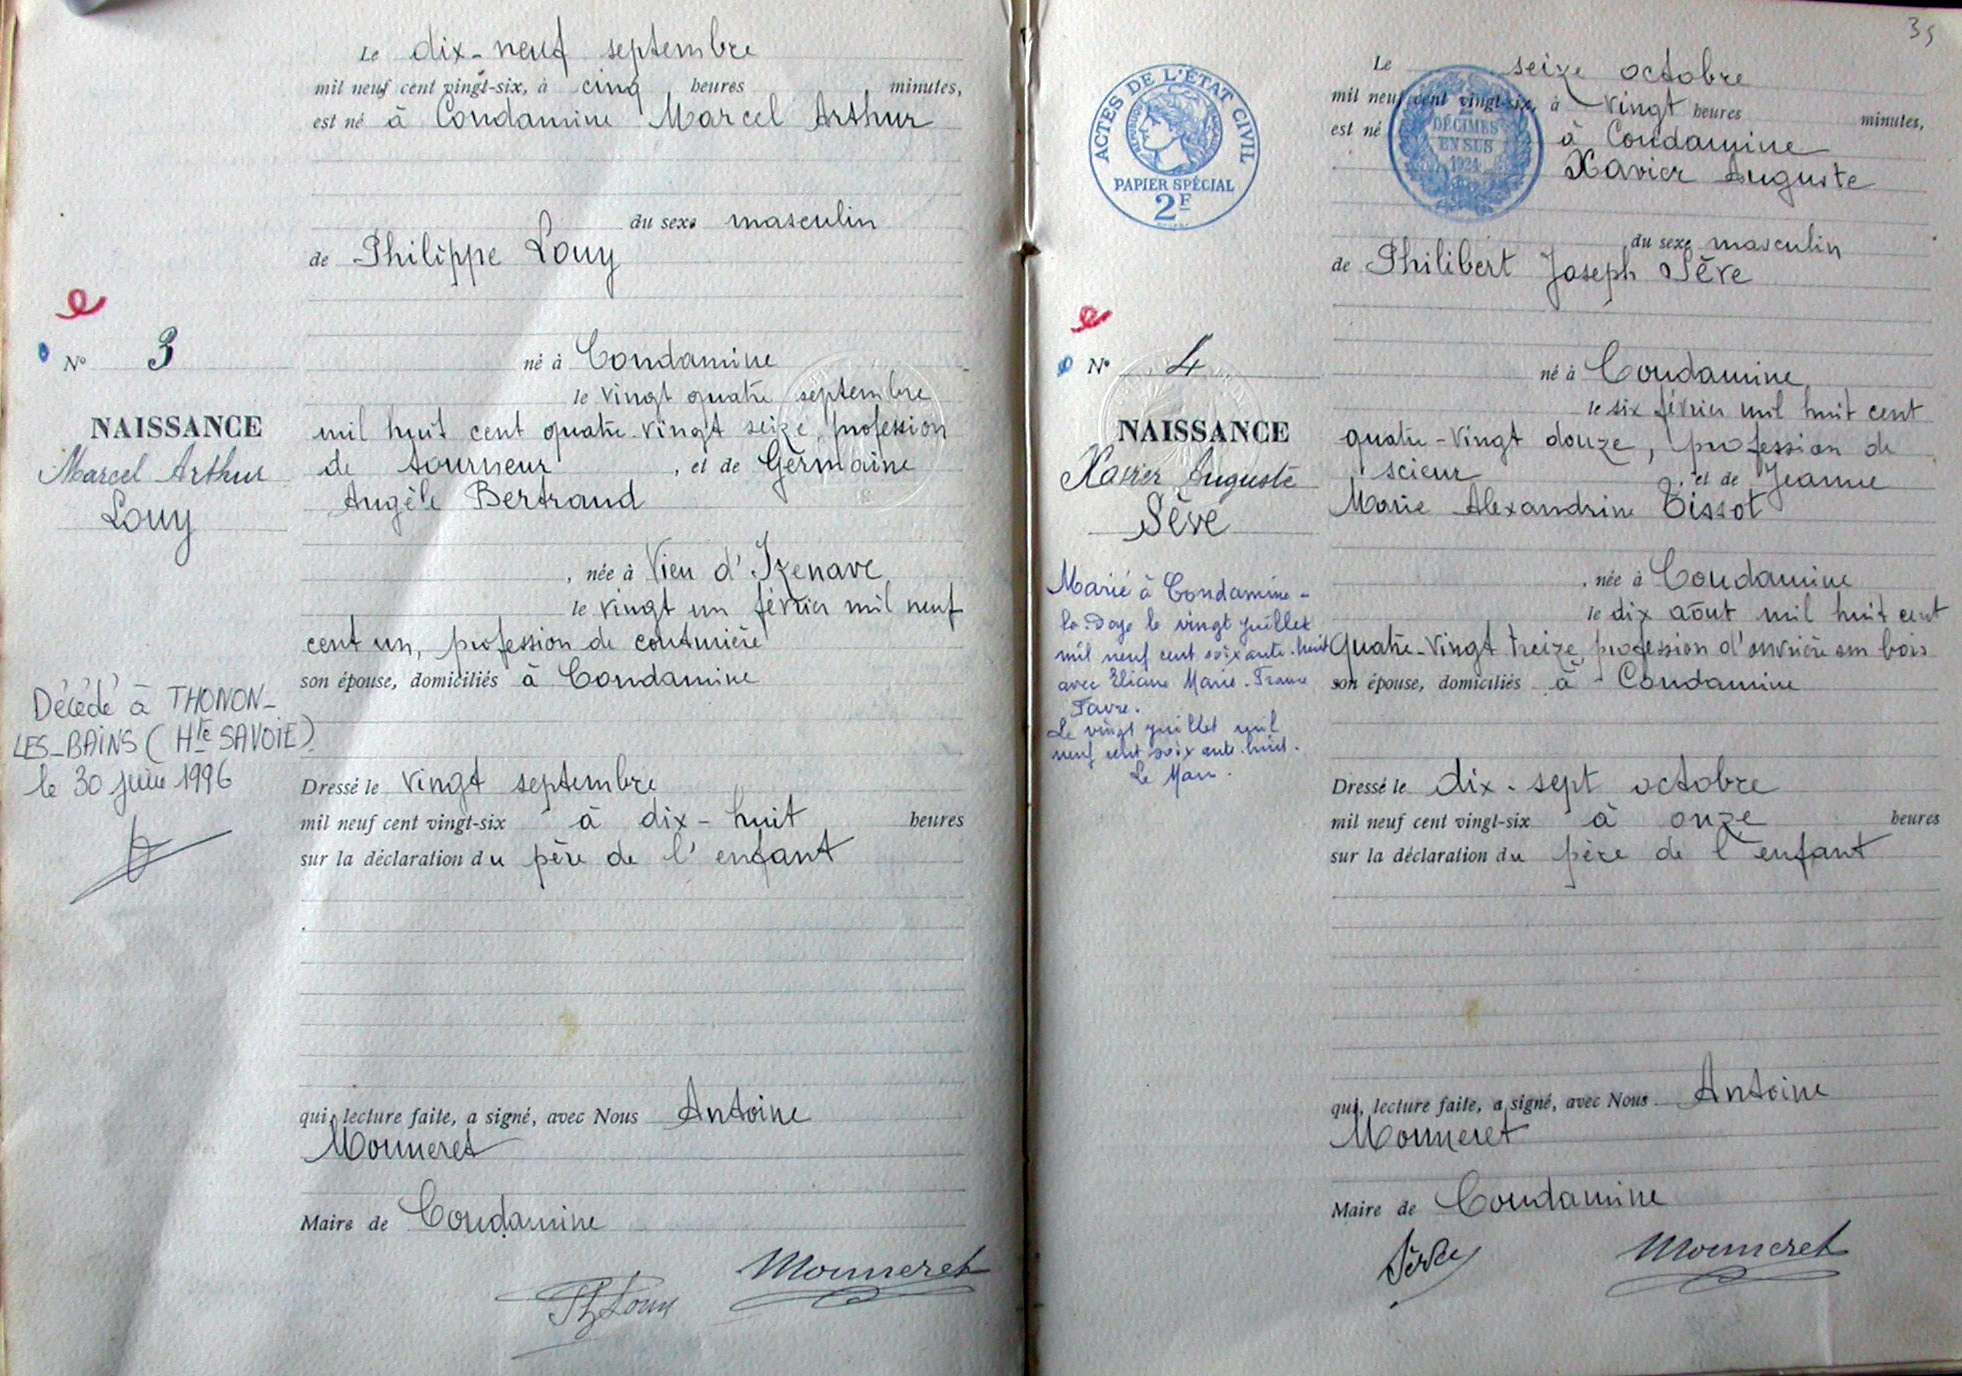 Le dix-neuf septembre
mil neuf cent vingt-six, à cinq heures minutes,
est né à Condamine Marcel Arthur
du sexe masculin
de Philippe Louy
né à Condamine
le vingt quatre septembre
mil huit cent quatre-vingt seize, profession
de tourneur, et de Germaine
Angèle Bertrand
, née à Vieu d'Izenave
le vingt un février mil neuf
cent un, profession de couturière
son épouse, domiciliés à Condamine
Dressé le vingt septembre
mil neuf cent vingt-six à dix-huit heures
sur la déclaration du père de l'enfant
qui, lecture faite, a signé, avec Nous Antoine
Monneret
Maire de Condamine
Ph Louy
Monneret
Nº 3
NAISSANCE
Marcel Arthur
Louy
Décédé à THONON-
LES-BAINS (Hte SAVOIE)
le 30 juin 1996
35
ACTES DE L'ÉTAT CIVIL
PAPIER SPÉCIAL
2F
2
DÉCIMES
EN SUS
1924
Le seize octobre
mil neuf cent vingt-six, à vingt heures minutes,
est né à Condamine
Xavier Auguste
du sexe masculin
de Philibert Joseph Sève
né à Condamine
le six février mil huit cent
quatre-vingt douze, profession de
scieur, et de Jeanne
Marie Alexandrine Tissot
, née à Condamine
le dix août mil huit cent
quatre-vingt treize, profession d'ouvrière en bois
son épouse, domiciliés à Condamine
Dressé le dix-sept octobre
mil neuf cent vingt-six à onze heures
sur la déclaration du père de l'enfant
qui, lecture faite, a signé, avec Nous Antoine
Monneret
Maire de Condamine
Sève
Monneret
Nº 4
NAISSANCE
Xavier Auguste
Sève
Marié à Condamine-
la-Doye le vingt juillet
mil neuf cent soixante-huit
avec Eliane Marie-France
Favre.
Le vingt juillet mil
neuf cent soixante-huit.
Le Maire.